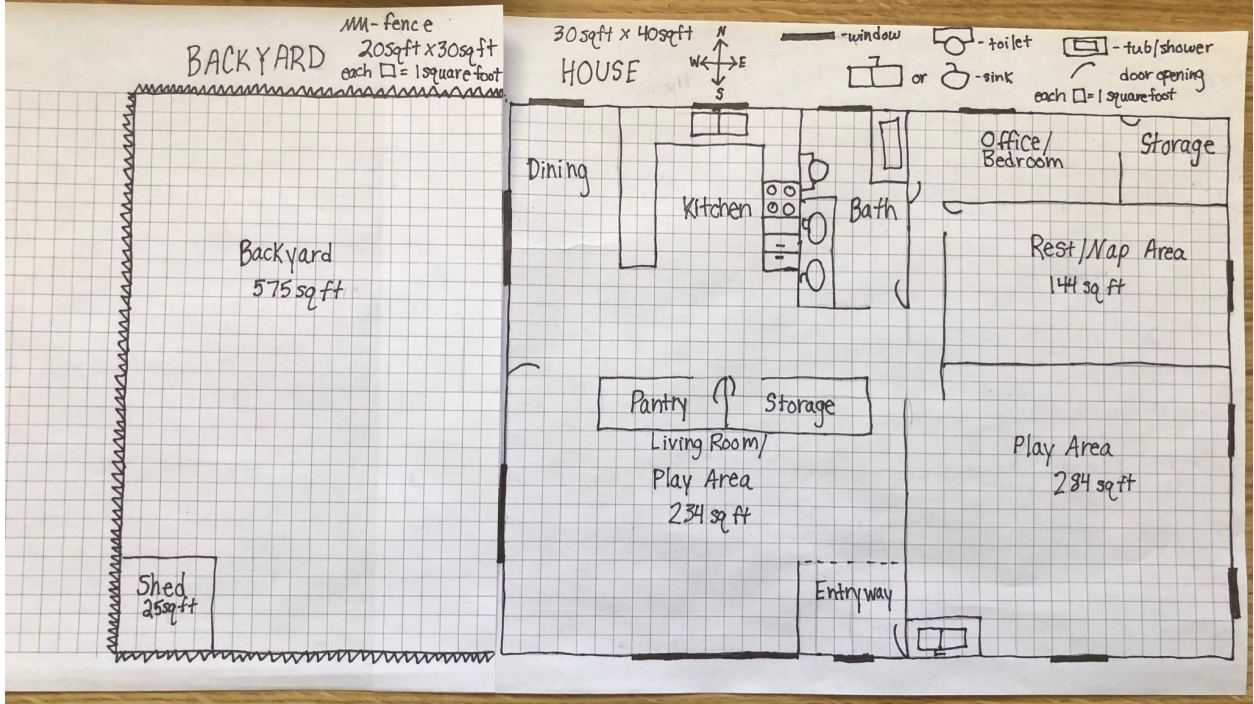 MM-fence
BACKYARD
20sqft x 30sqft
each □ = 1 square foot
Backyard
575 sq ft
Shed
25sqft
30sqft x 40sqft
HOUSE
N
W E
S
-window
-toilet
-tub/shower
or -sink
door opening
each □ = 1 square foot
Dining
Kitchen
Bath
Office/
Bedroom
Storage
Rest/Nap Area
144 sq ft
Pantry
Storage
Living Room/
Play Area
234 sq ft
Play Area
284 sq ft
Entryway